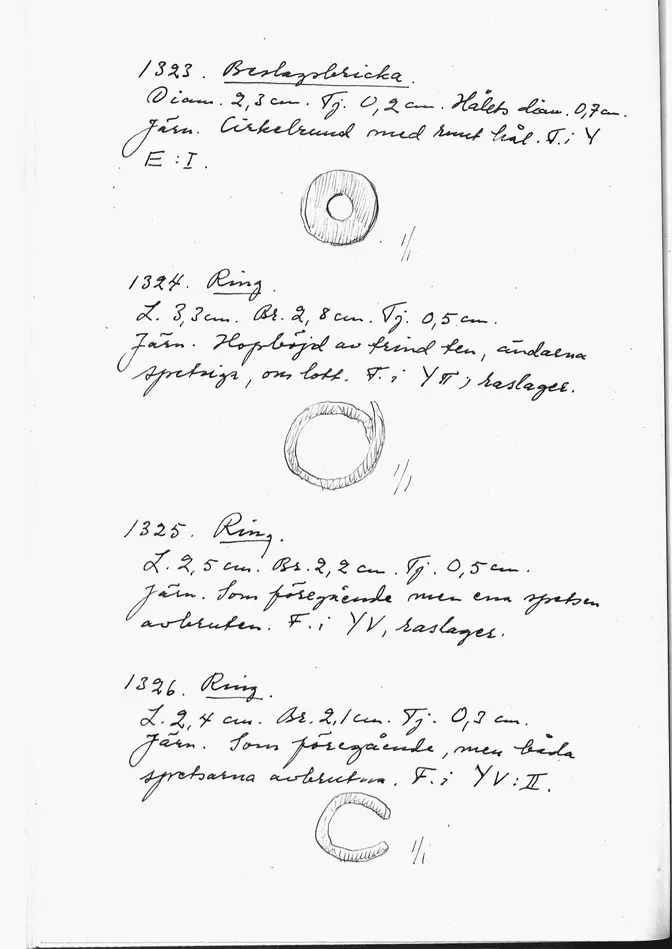 1323. Beslagsbricka.
Diam. 2,3 cm. Tj. 0,2 cm. Hålets diam. 0,7 cm.
Järn. Cirkelrund med runt hål. F. i Y
E : I.
1/1
1324. Ring.
L. 3,3 cm. Br. 2,8 cm. Tj. 0,5 cm.
Järn. Hopböjd av trind ten, ändarna
spetsiga, om lott. F. i Y π, raslager.
1/1
1325. Ring.
L. 2,5 cm. Br. 2,2 cm. Tj. 0,5 cm.
Järn. Som föregående men ena spetsen
avbruten. F. i YV, raslager.
1326. Ring.
L. 2,4 cm. Br. 2,1 cm. Tj. 0,3 cm.
Järn. Som föregående, men båda
spetsarna avbrutna. F. i YV : II.
1/1